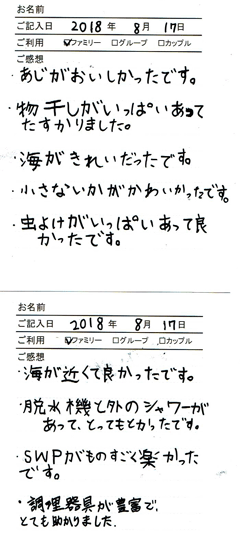 お名前
ご記入日 2018年 8月 17日
ご利用 ☑ファミリー □グループ □カップル
ご感想
・あじがおいしかったです。
・物干しがいっぱいあって
たすかりました。
・海がきれいだったです。
・小さないかがかわいかったです。
・虫よけがいっぱいあって良
かったです。
お名前
ご記入日 2018年 8月 17日
ご利用 ☑ファミリー □グループ □カップル
ご感想
・海が近くて良かったです。
・脱水機と外のシャワーが
あって、とってもよかったです。
・SWPがものすごく楽かった
です。
・調理器具が豊富で、
とても助かりました。